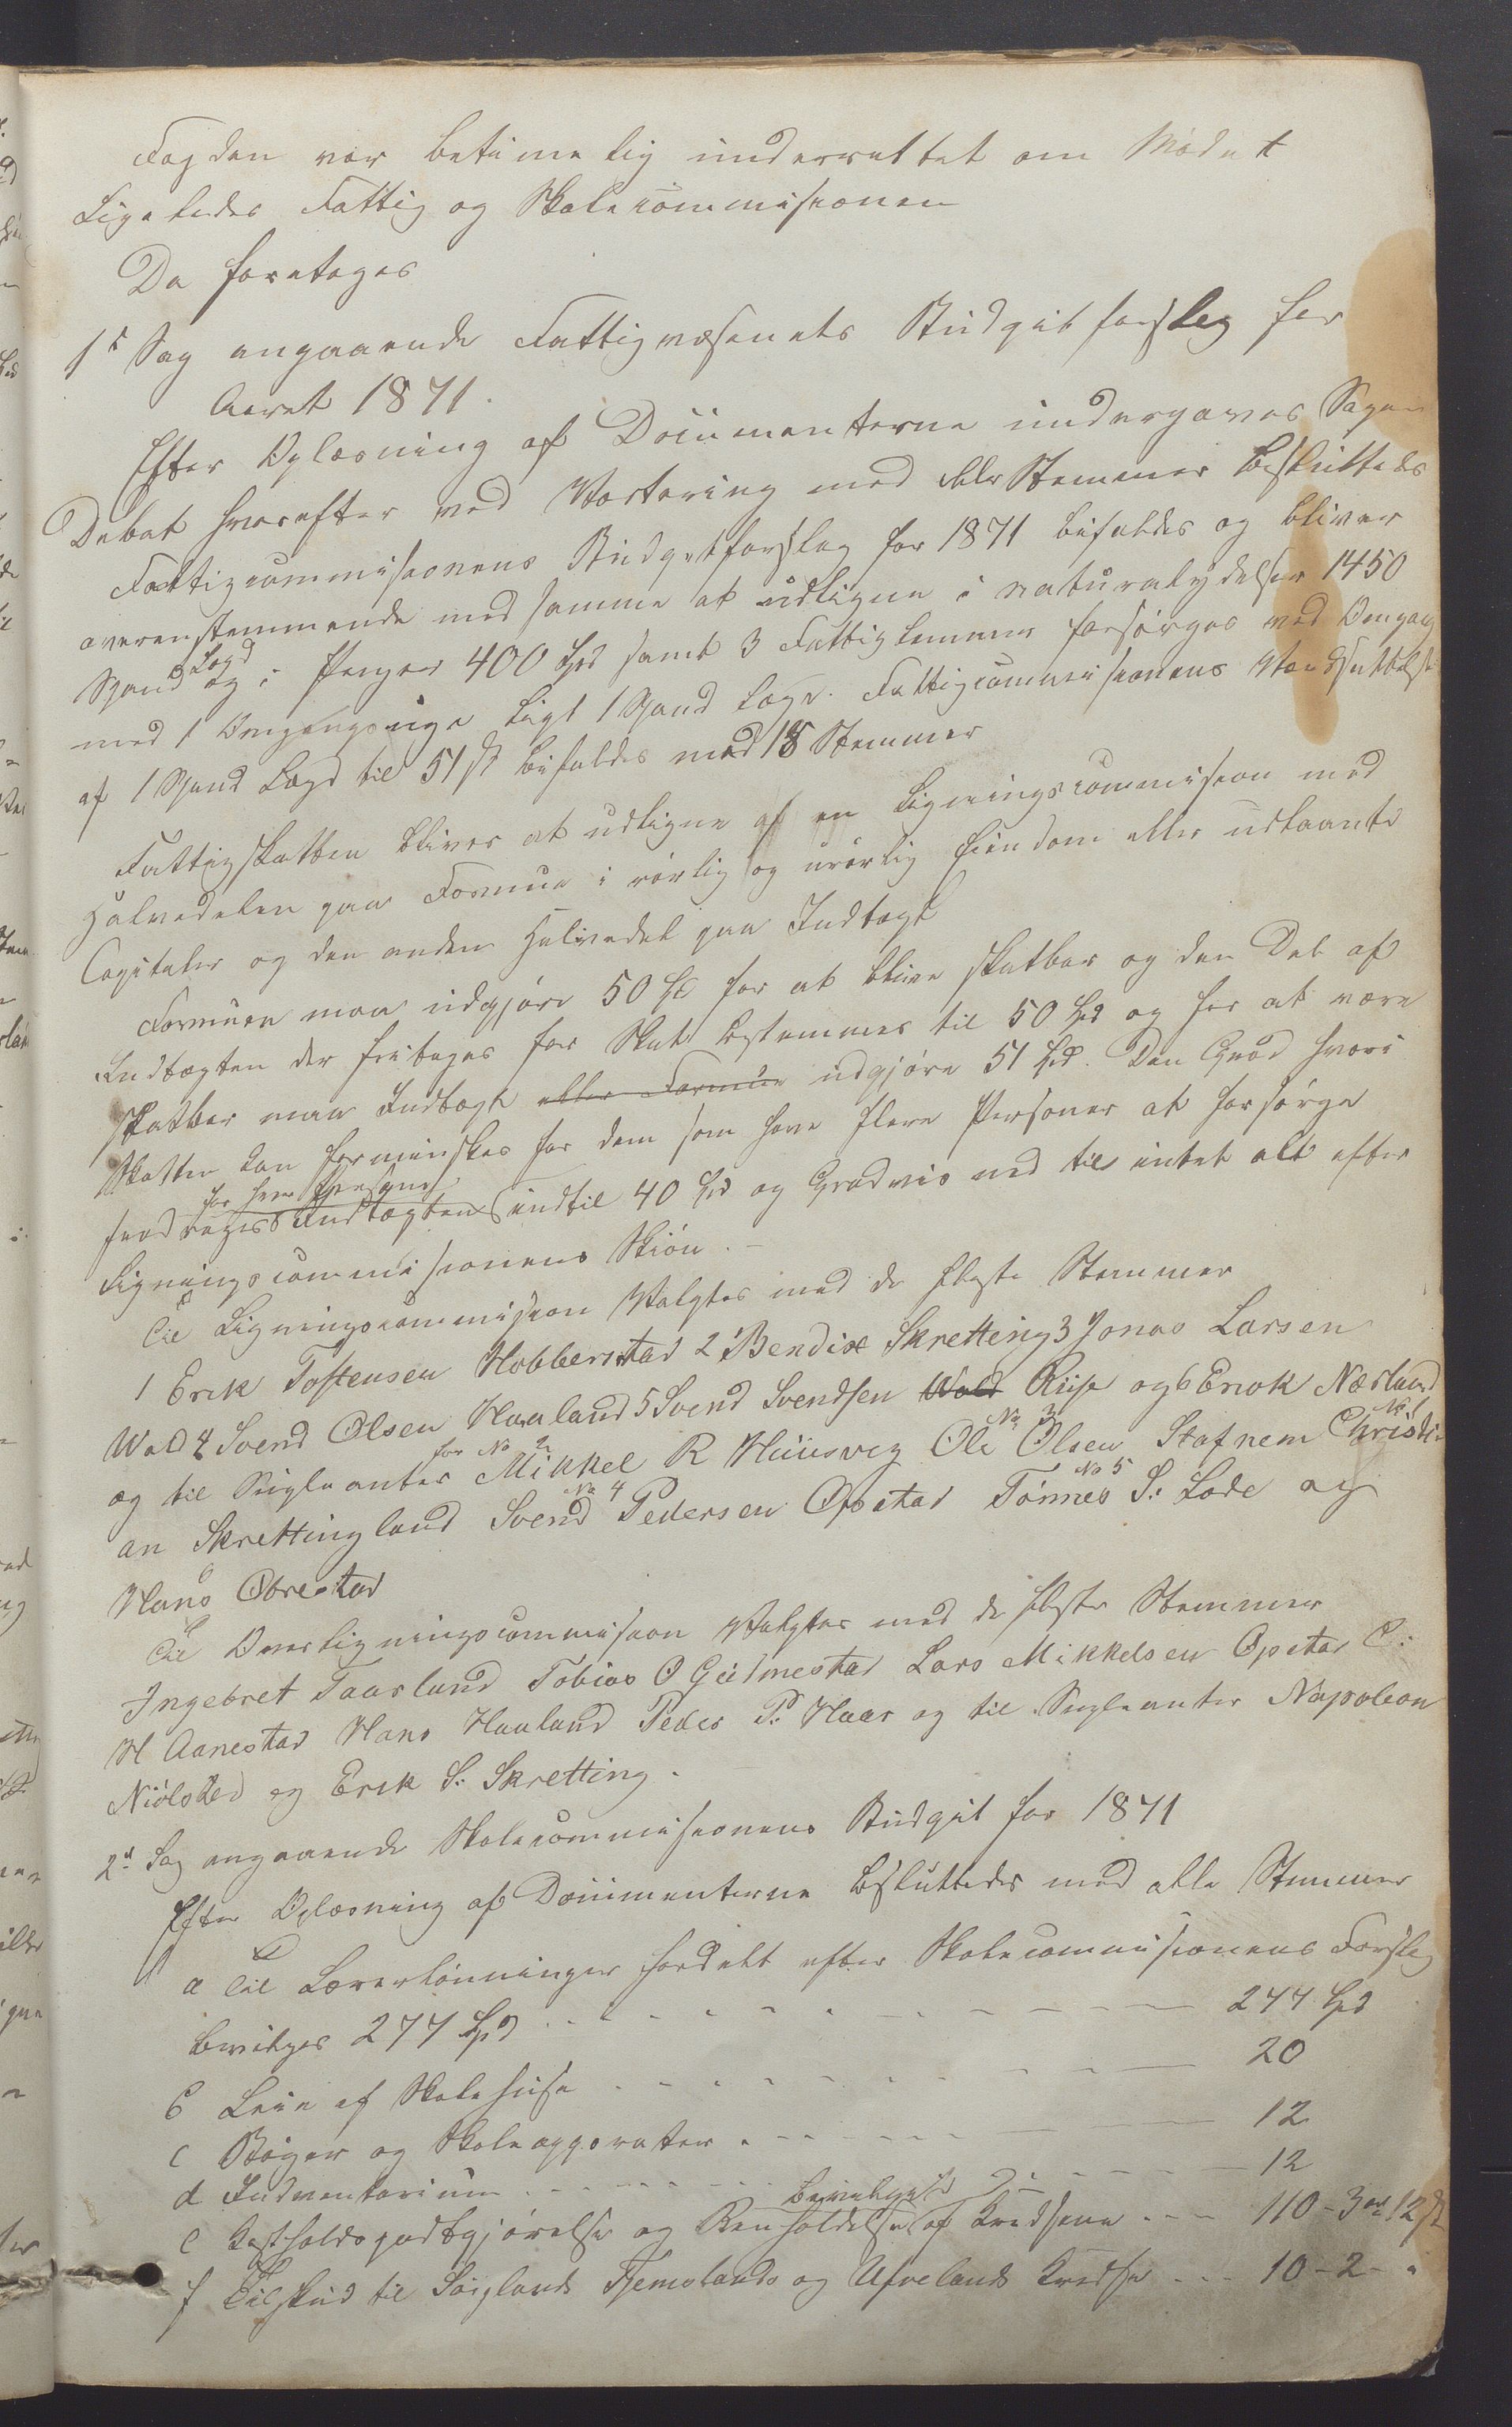 Fogden var betimelig underrettet om Mødet
Ligeledes Fattig og Skolecommisionen
Da foretoges
1st Sag angaaende Fattigvæsenets Budgetforslag for
Aaret 1871.
Efter Oplæsning af Documenterne undergaves Sagen
Debat hvorefter ved Vortering med alle Stemmer besluttedes
Fattigcommisionens Budgetforslag for 1871 bifaldes og bliver
overenstemmende med samme at udligne i naturalydelser 1450
Spand Lægd og i Penger 400 Spd samt 3 Fattiglemmer forsørges ved Omgang
med 1 Omgangsuge ligt 1 Spand Lægd. Fattigcommisionens Værdsettelse
af 1 Spand Lægd til 51 sk bifaldes med 18 Stemmer
Fattigskatten bliver at udligne af en Ligningscommision med
Halvedelen paa Formue i rørlig og urørlig Eiendom eller udlaante
Capitaler og den anden Halvedel paa Indtægt
Formuen maa udgjøre 50 Spd for at blive skatbar og den Del af
Indtægten der fritages for Skat bestemmes til 50 Spd og for at være
skatbar maa Indtægt eller Formue udgjøre 51 Spd. Den Grad hvori
Skatten kan forminskes for dem som have flere Personer at forsørge
for hver Person
fradrages Indtægten indtil 40 Spd og Gradvis ned til intet alt efter
Ligningscommisionens Skiøn. -
Til Ligningscommision Valgtes med de fleste Stemmer
1 Erik Tostensen Hobberstad 2 Bendix Skretting 3 Jonas Larsen
Wold 4 Svend Olsen Haaland 5 Svend Svendsen Wold Riise og 6 Enok Nærland
og til Supleanter for No 2 Mikkel R Huusveg No 3 Ole Olsen Stafnem No 1 Christi
an Skrettingland No 4 Svend Pedersen Opstad No 5 Tønnes S. Lode og
6 Hans Obrestad
Til Overligningscommision Valgtes med de fleste Stemmer
Ingebret Taarland Tobias O Gudmestad Lars Mikkelsen Opstad C:
H Aanestad Hans Haaland Peder P. Haar og til Supleanter Napoleon
Niølsted og Erik S. Skretting.
2d Sag angaaende Skolecommisionens Budget for 1871
Efter Oplæsning af Documenterne besluttedes med alle Stemmer
a Til Lærerlønninger fordelt efter Skolecommisionens Forslag
bevilges 277 Spd - - - 277 Spd
b Leie af Skolehuse - - - 20
c Bøger og Skoleapparater - - - 12
d Indventarium - - - 12
bevilges
e Kostholdsgodtgjørelse og Renholdelse af Kredsene - - - 110 - 3 ort 12 sk
f Tilskud til Høiglands Tjemslands og Ufvelands Kredse - - - 10 - 2 - "